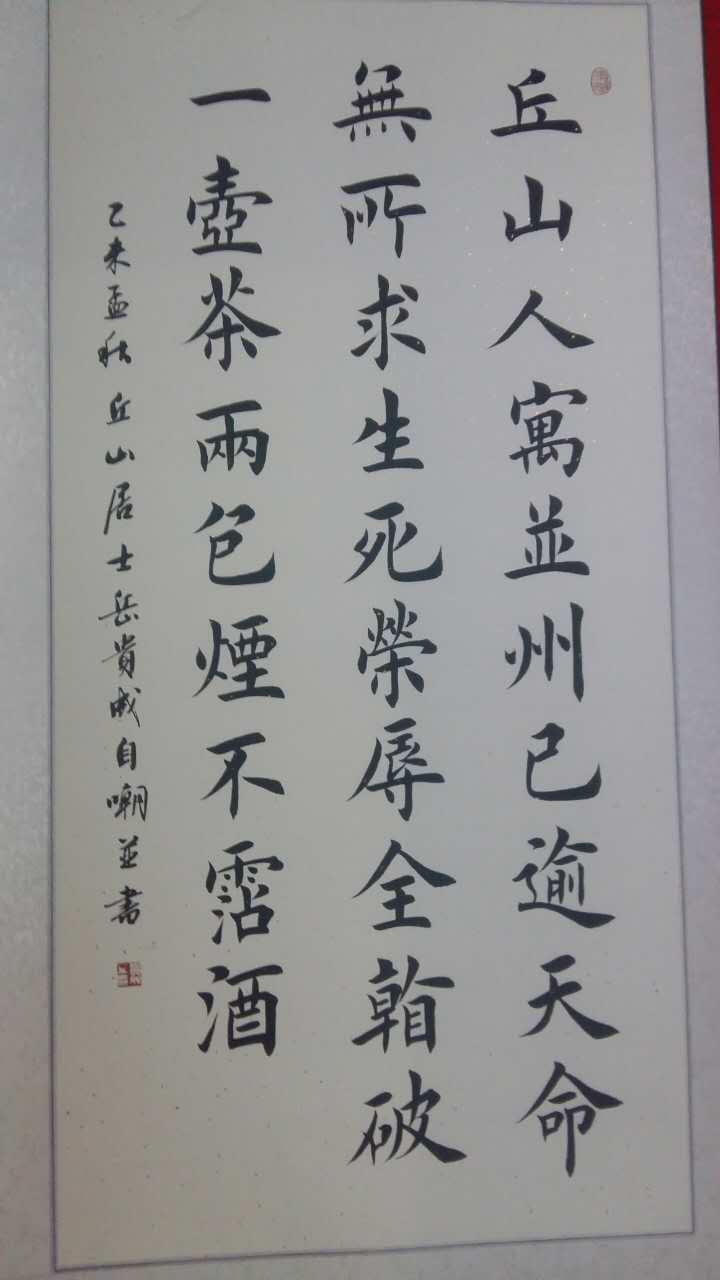 丘山人寓並州已逾天命
無所求生死榮辱全看破
一壺茶兩包煙不霑酒
乙未孟秋丘山居士岳貴成自嘲並書